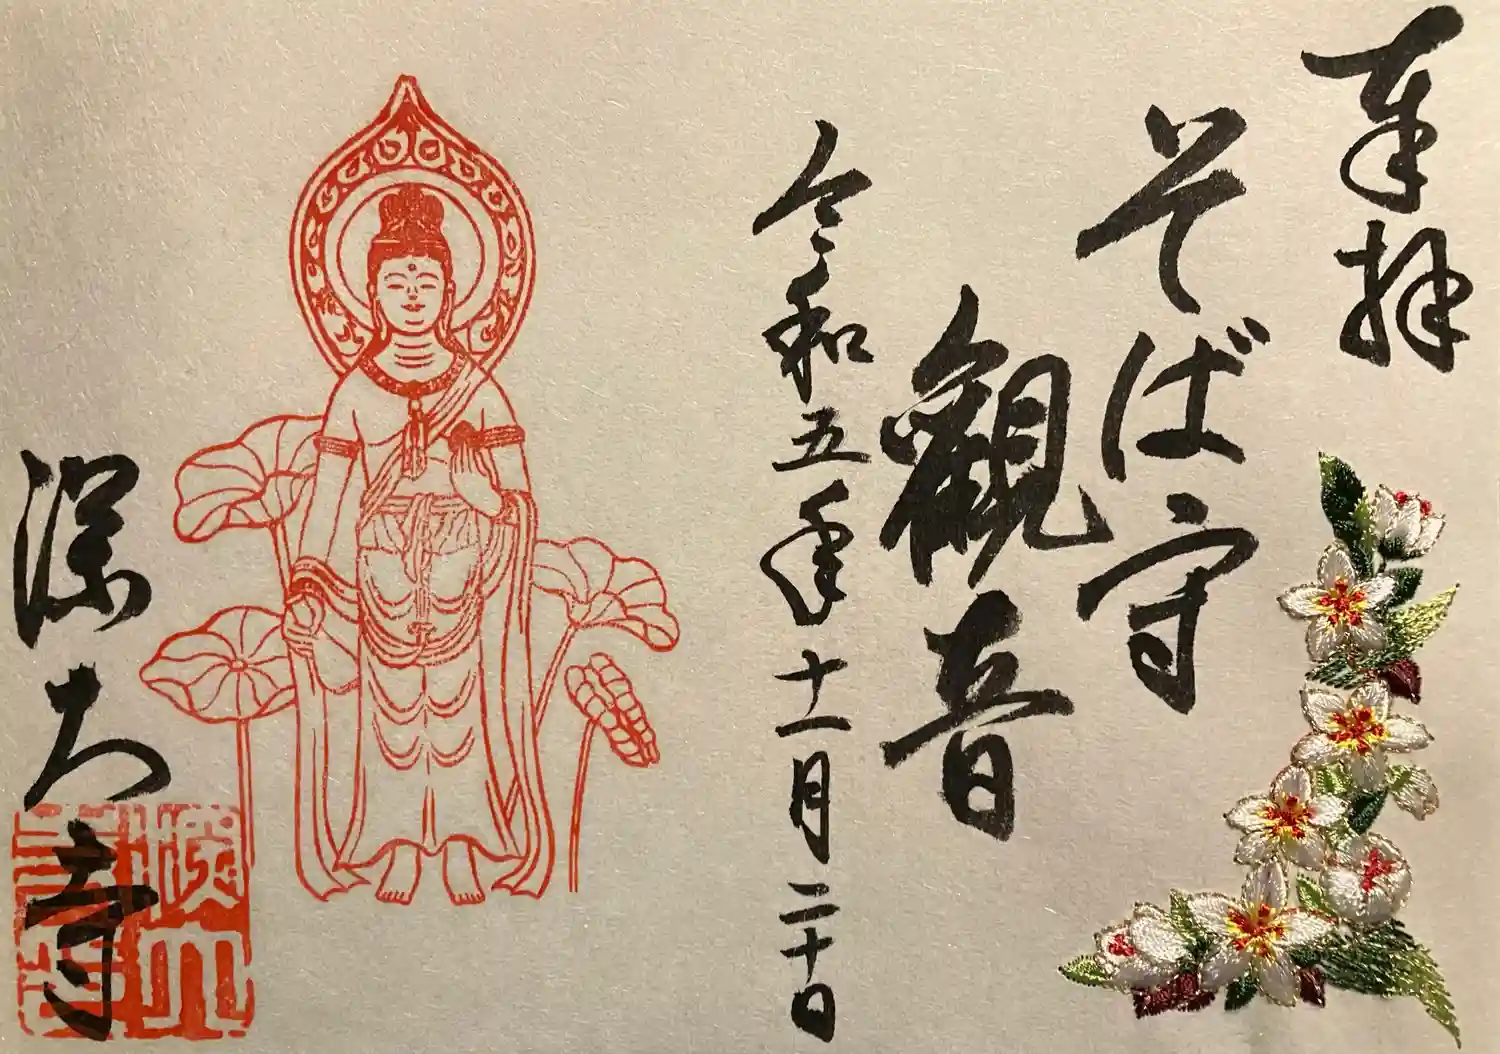 奉拝
そば守
観音
令和五年十一月二十日
深大寺